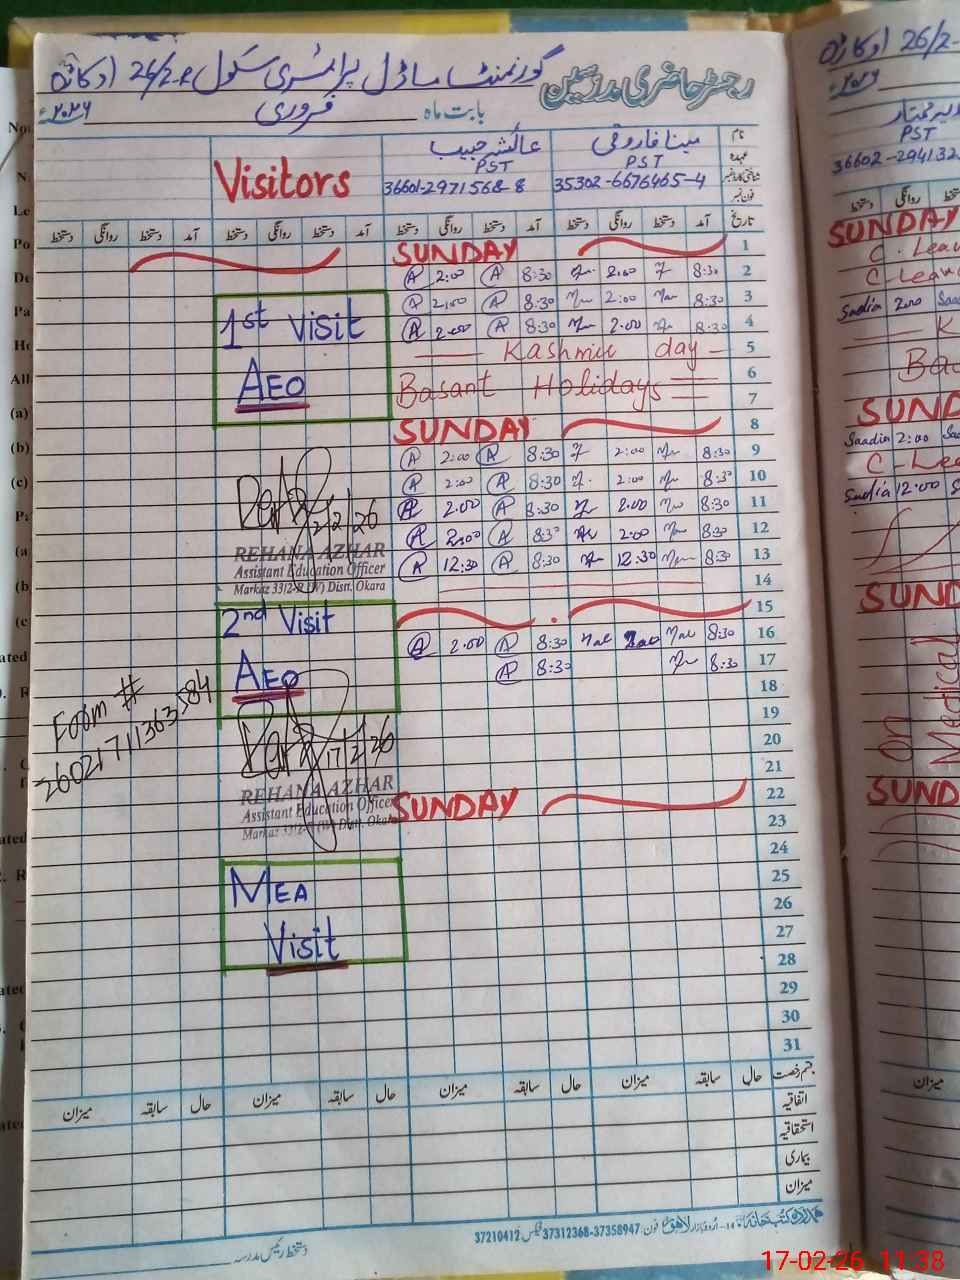 رجسٹر حاضری مدرسین
گورنمنٹ ماڈل پرائمری سکول 26/2-R اوکاڑہ
بابت ماہ فروری ۲۰۲۶ء
نام مینا فاروقی عائشہ حبیب
عہدہ PST PST
شناختی کارڈ نمبر 35302-6676465-4 36601-2971568-8
فون نمبر
Visitors
تاریخ آمد دستخط روانگی دستخط آمد دستخط روانگی دستخط آمد دستخط روانگی دستخط آمد دستخط روانگی دستخط
1 SUNDAY
2 8:30 2:00 8:30 2:00
3 8:30 2:00 8:30 2:00
4 8:30 2.00 8:30 2:00
5 Kashmir day
6 Basant Holidays
7
8 SUNDAY
9 8:30 2:00 8:30 2:00
10 8:30 2:00 8:30 2:00
11 8:30 2.00 8:30 2.00
12 8:30 2.00 8:30 2:00
13 8:30 12:30 8:30 12:30
14
15
16 8:30 2.00 8:30 2.00
17 8:30 8:30
18
19
20
21
22 SUNDAY
23
24
25
26
27
28
29
30
31
1st Visit
AEO
2/2/26
REHANA AZHAR
Assistant Education Officer
Markaz 33/2-R (W) Distt. Okara
2nd Visit
AEO
17/2/26
REHANA AZHAR
Assistant Education Officer
Markaz 33/2-R (W) Distt. Okara
MEA
Visit
حال سابقہ میزان حال سابقہ میزان حال سابقہ میزان حال سابقہ میزان
اتفاقیہ
استحقاقیہ
بیماری
میزان
دستخط رئیس مدرسہ
فون: 37358947-37312368 فیکس: 37210412
26/2- اوکاڑہ
۲۰۲۶ء
PST
SUNDAY
C. Leav
C-Leave
Sadia 2:00
SUND
Saadia 2:00
C-Lea
Sadia 12:00
SUND
on
Medical
SUND
میزان
17-02-26 11:38